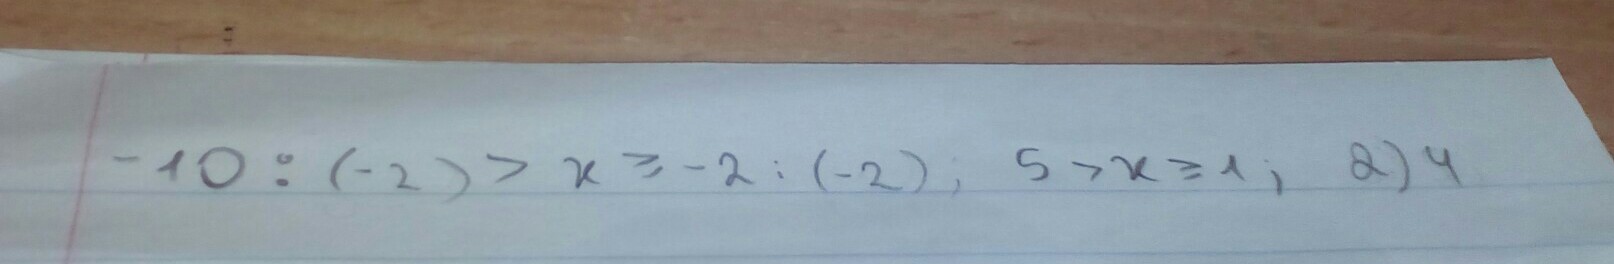 -10 : (-2) > x ≥ -2 : (-2); 5 > x ≥ 1; 2) 4